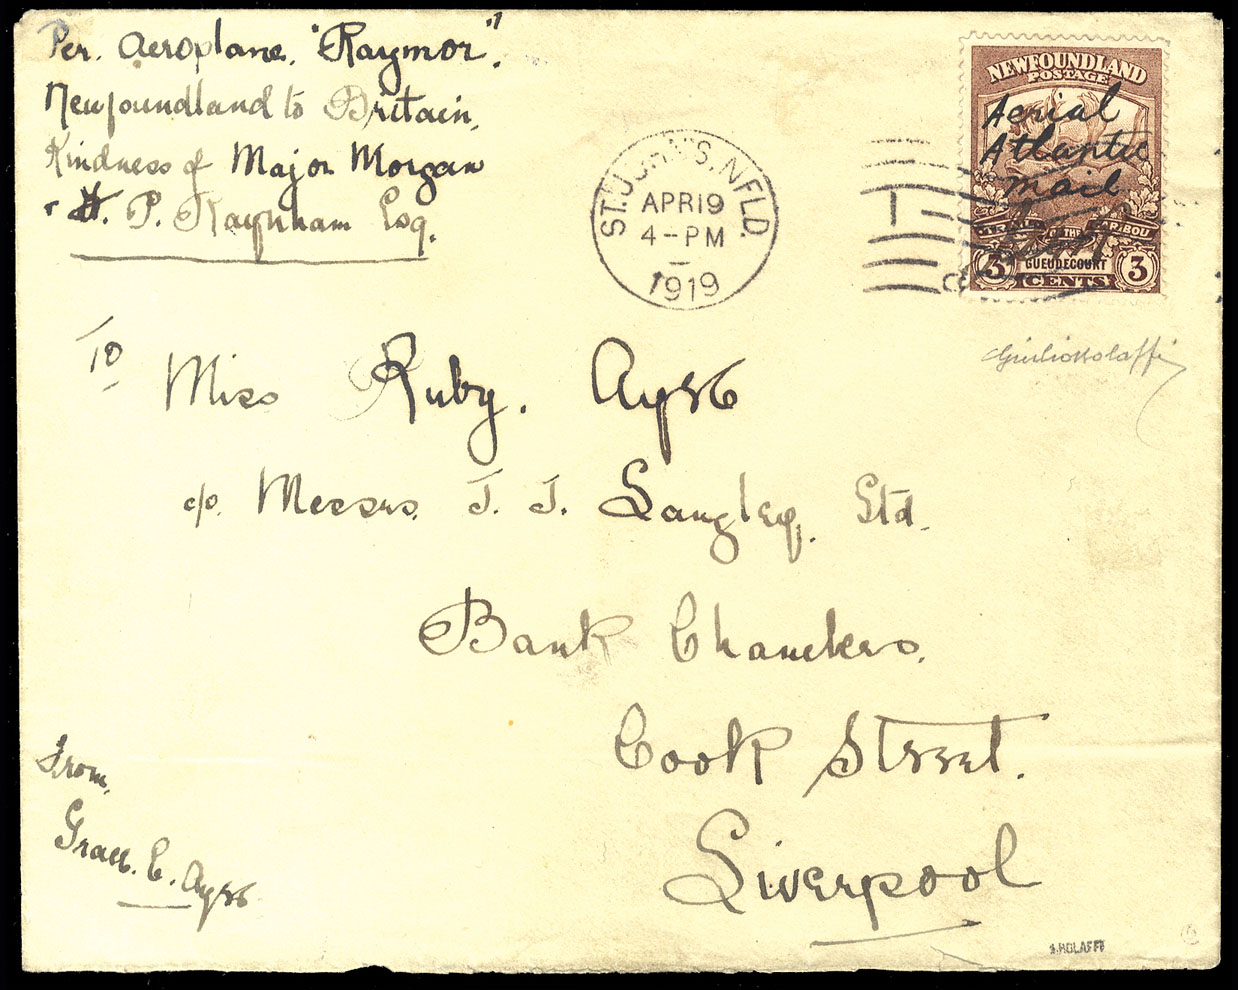 Per. Aeroplane. "Raymor".
Newfoundland to Britain,
Kindness of Major Morgan
& H. P. Raynham Esq.
ST. JOHN'S. NFLD.
APR 19
4-PM
1919
NEWFOUNDLAND
POSTAGE
Aerial
Atlantic
Mail
GUEUDECOURT
3 CENTS 3
To
Miss Ruby. Ayre
c/o. Messrs. J. J. Langley, Ltd.
Bank Chambers.
Cook Street.
Liverpool
From,
Grace. E. Ayre